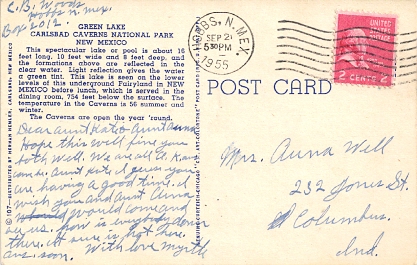 C.B. Woods
Box 2012
Hobbs n.mex.
GREEN LAKE
CARLSBAD CAVERNS NATIONAL PARK
NEW MEXICO
This spectacular lake or pool is about 16
feet long, 10 feet wide and 8 feet deep, and
the formations above are reflected in the
clear water. Light reflection gives the water
a green tint. This lake is seen on the lower
levels of this underground Fairyland in NEW
MEXICO before lunch, which is served in the
dining room, 754 feet below the surface. The
temperature in the Caverns is 56 summer and
winter.
The Caverns are open the year 'round.
Dear aunt Katie & Aunt Anna
Hope this will find you
both Well. We are all O.K.
aunt Katie I guess you
are having a good time. I
wish you and Aunt Anna
would come and
see us. how is everybody down
there. it sure is hot here.
ans. soon. With love myrtle
HOBBS, N. MEX.
SEP 2
530PM
1955
UNITED
STATES
POSTAGE
2 CENTS 2
POST CARD
Mrs. Anna Well
232 Jones St.
Columbus.
Ind.